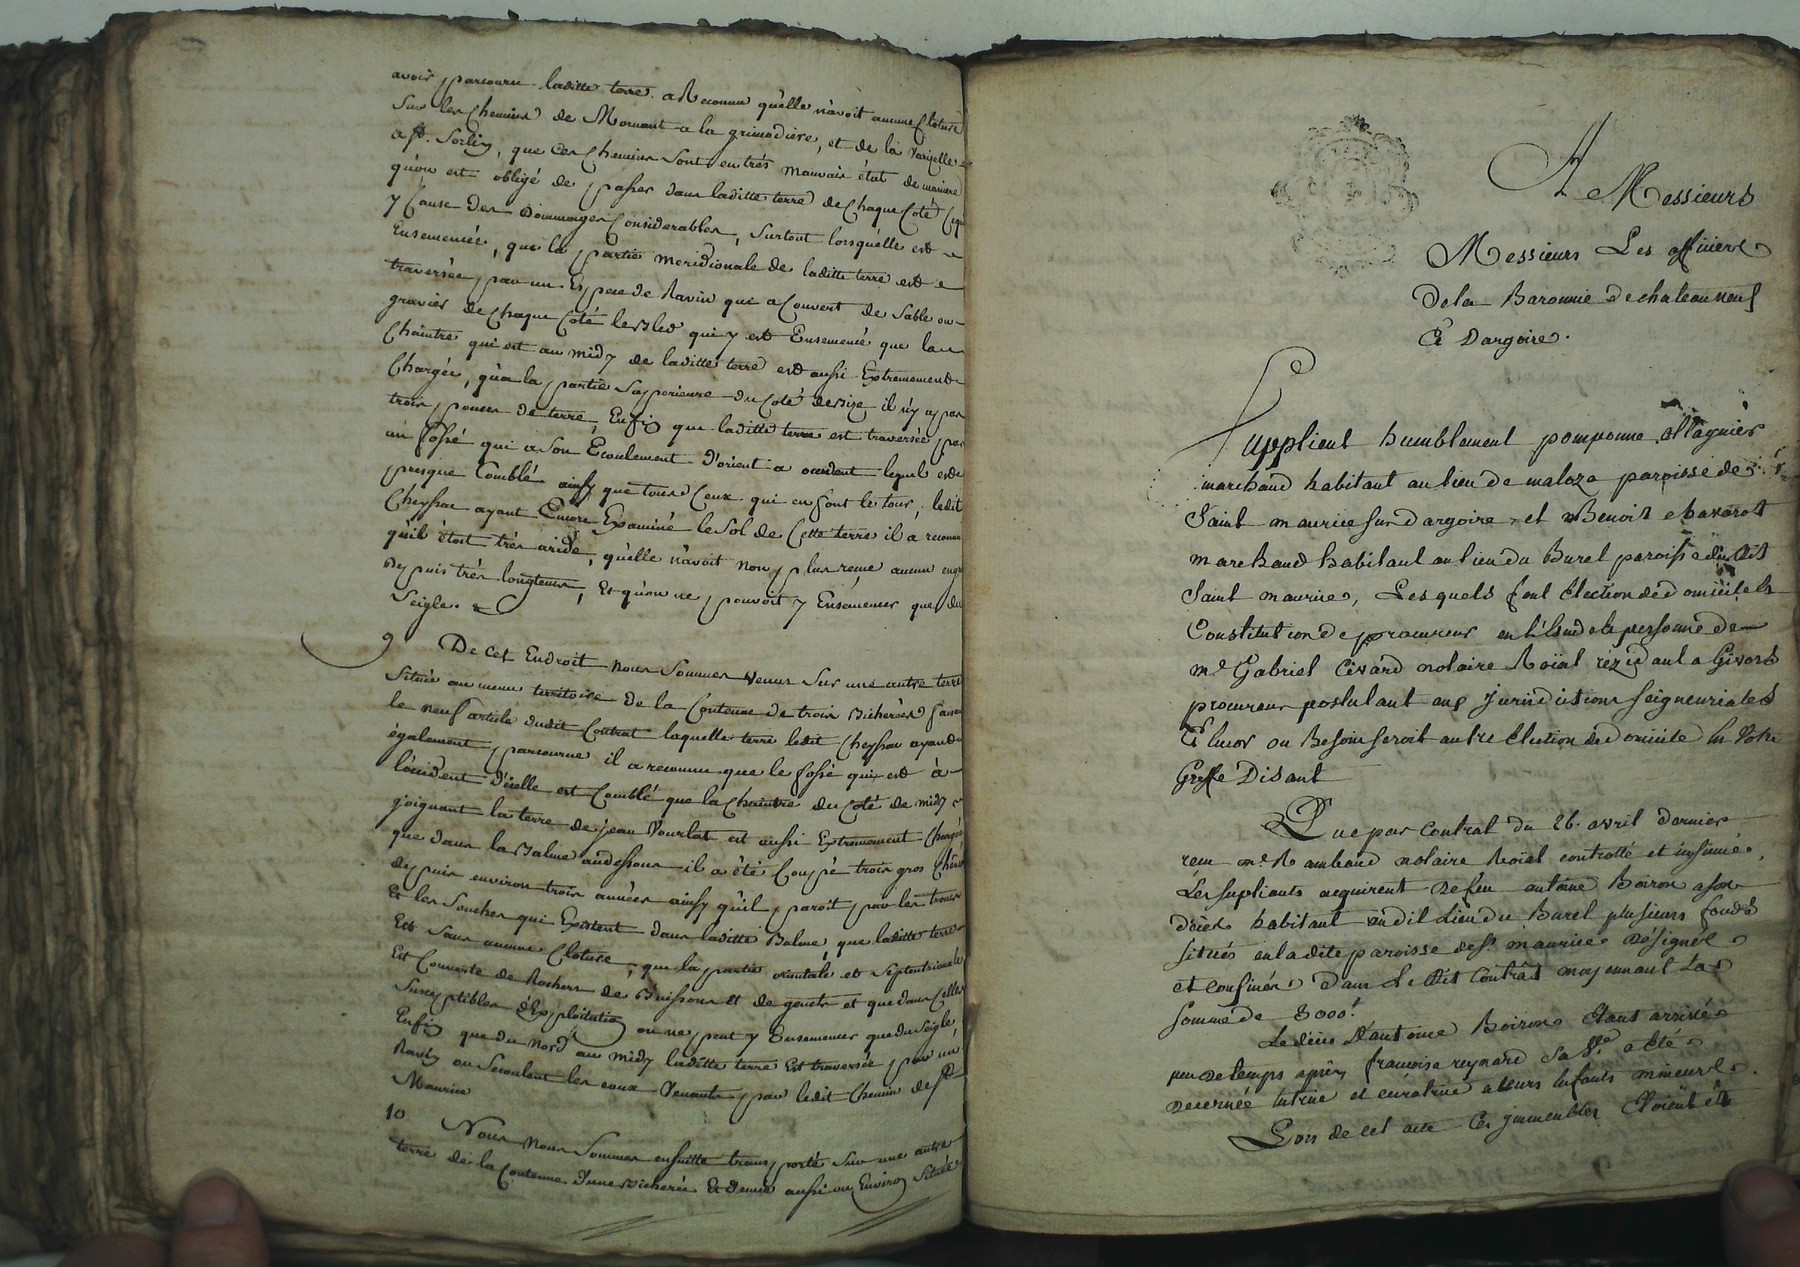 avoir parcouru laditte terre a Reconnu qu'elle n'avoit aucune Cloture
Sur les Chemins de Mornant a la grimodiere, et de la Varizelle
a St. Sorlin, que ces Chemins Sont en très mauvais état de maniere
qu'on est obligé de passer dans laditte terre de Chaque Coté Ce qui
y Cause des dommages Considerables, Surtout lorsqu'elle est
Ensemencée, que la partie meridionale de laditte terre est
traversée par un Espece de Ravin qui a Couvert de Sable ou
gravier de Chaque Coté le Bled qui y est Ensemencé que la
Chaintre qui est au midy de laditte terre est aussi Extremement
Chargée, qu'a la partie Superieure du Coté de bize il n'y a pas
trois pouces de terre, Enfin que laditte terre est traversée par
un fossé qui a Son Ecoulement d'orient a occident lequel est
presque Comblé ainsy que tous Ceux qui en font le tour, ledit
Cheyssac ayant Encore Examiné le Sol de Cette terre il a reconnu
qu'il étoit très aride, qu'elle n'avoit non plus reçue aucun
depuis très longtems, Et qu'on ne pouvoit y Ensemencer que du
Seigle.
9 De cet Endroit nous Sommes venus Sur une autre terre
Située au meme territoire de la Contenue de trois Bicherées faisant
le neuf article dudit Contrat laquelle terre ledit Cheyssac ayant
également parcourue il a reconnu que le fossé qui est à
l'occident d'icelle est Comblé que la Chaintre du Coté de midy
joignant la terre de jean Vourlat est aussi Extremement Chargée
que dans la Balme audessous il a été Coupé trois gros Chênes
depuis environ trois années ainsy qu'il paroit par les troncs
Et les Souches qui Existent dans laditte Balme, que laditte terre
Est Sans aucune Cloture, que la partie orientale et Septentrionale
Est Couverte de Rochers de Buissons et de genets et que dans Celles
Susceptibles d'Exploitation on ne peut y Ensemencer que du Seigle,
Enfin que du Nord au midy laditte terre Est traversée par un
Ravin ou Secoulent les eaux Venants par ledit Chemin de St
Maurice
10 Nous nous Sommes ensuitte transporté Sur une autre
terre de la Contenue d'une Bicherée Et demie aussi ou Environ Située
A Messieurs
Messieurs Les officiers
De la Baronnie de chateauneuf
Et Dargoire.
Supplient humblement pomponne allagnier
marchand habitant au lieu de maloza paroisse de
Saint maurice sur dargoire, et Benoit chavarot
marchand habitant au lieu du Burel paroisse dudit
Saint maurice, Lesquels font Election de domicile et
Constitution de procureur en l'étude et personne de
me. Gabriel Civard notaire Roïal rézidant a Givord
procureur postulant aux Jurisdictions seigneuriales
Et Encor ou Besoin seroit autre Election de domicile En Votre
Greffe Disant
Que par contrat du 26. avril dernier
reçu me. Rambaud notaire Roïal controllé et insinué,
Les supliants acquirent de feu antoine Boiron a son
décès habitant audit Lieu du Burel plusieurs fonds
situés en ladite paroisse de St. maurice désignés
et confinés dans Le dit contrat moyennant La
somme de 3000lt.
Le décès d'antoine Boiron Etant arrivé
peu de temps après françoise reynard sa Ve. a Eté
décernée tutrice et curatrice a leurs Enfants mineurs.
Lors de cet acte Ces immeubles Etoient En